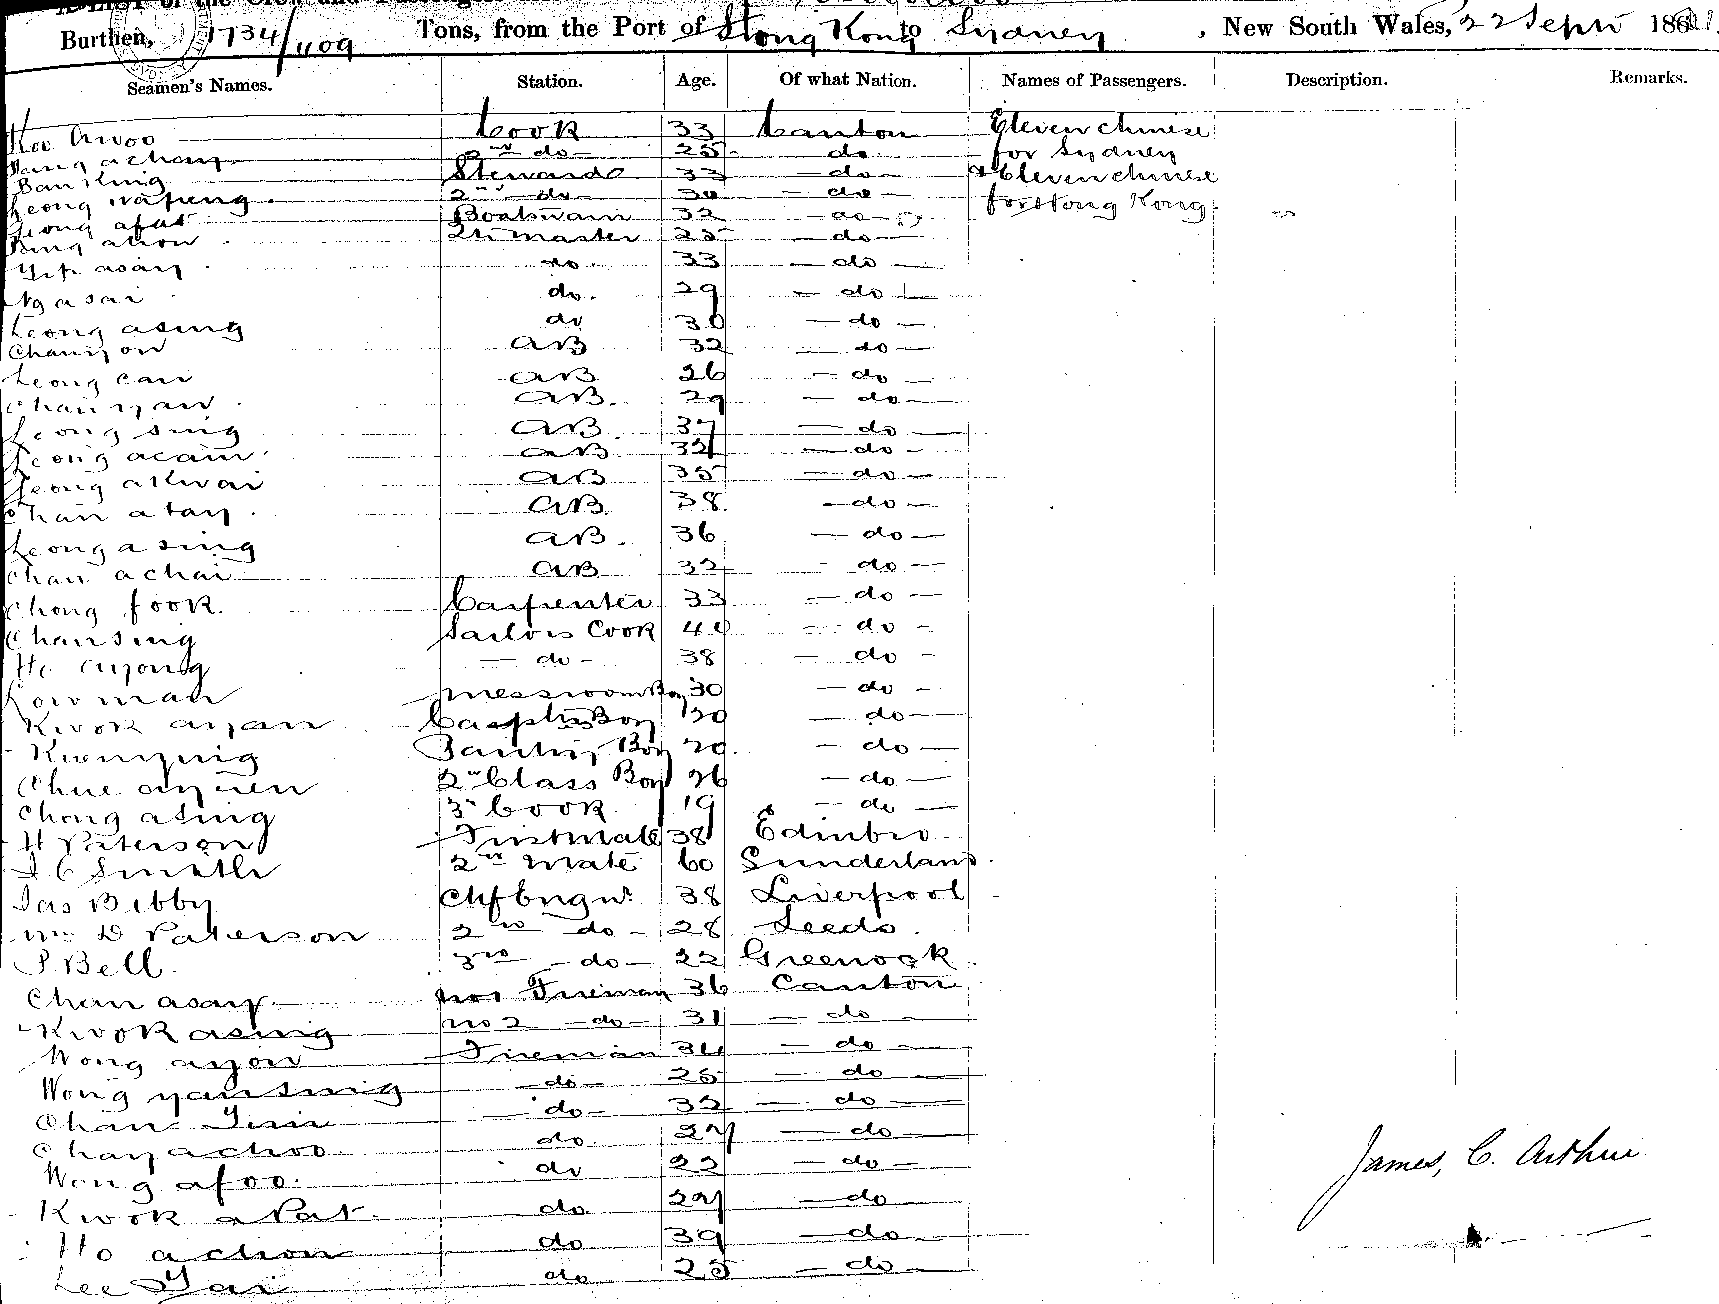 Burthen, 1734/1109 Tons, from the Port of Hong Kong to Sydney, New South Wales, 22 Sept 188
Seamen's Names. Station. Age. Of what Nation. Names of Passengers. Description. Remarks.
Cook 33 Canton Eleven Chinese
2nd do 25 do for Sydney
Steward 33 do & Eleven Chinese
2nd do 30 do for Hong Kong
Leong afat Boatswain 32 do
Qr master 25 do
Yip asay do 33 do
Ng a sai do. 29 do
Leong asing do 30 do
Chan yon AB 32 do
Leong can AB 26 do
Chan yaw AB. 29 do
Leong sing AB 37 do
Leong acam AB 32 do
Leong akwai AB 35 do
Chan a tay AB 38 do
Leong a sing AB. 36 do
Chan a chai AB 32 do
Chong fook. Carpenter 33 do
Chan sing Sailors Cook 40 do
Ho ayong do 38 do
Low man Messroom Boy 30 do
Kwok ayan Capt's Boy 30 do
Pantry Boy 20 do
Chue ayuen 2nd Class Boy 26 do
Chong asing 3rd Cook 19 do
H Paterson First Mate 38 Edinbro
J C Smith 2nd Mate 60 Sunderland
Jas Bibby Chf Engr. 38 Liverpool
Wm D Paterson 2nd do 28 Leeds.
S Bell 3rd do 22 Greenock
Chan asay No 1 Fireman 36 Canton
Kwok asing no 2 do 31 do
Wong ayow Fireman 34 do
Wong yan sing do 25 do
Chan do 32 do
Chay achoo do 27 do
Wong afoo. do 22 do
Kwok a Pat. do 27 do
Ho achon do 39 do
Lee Yai do 25 do
James, C. Arthur